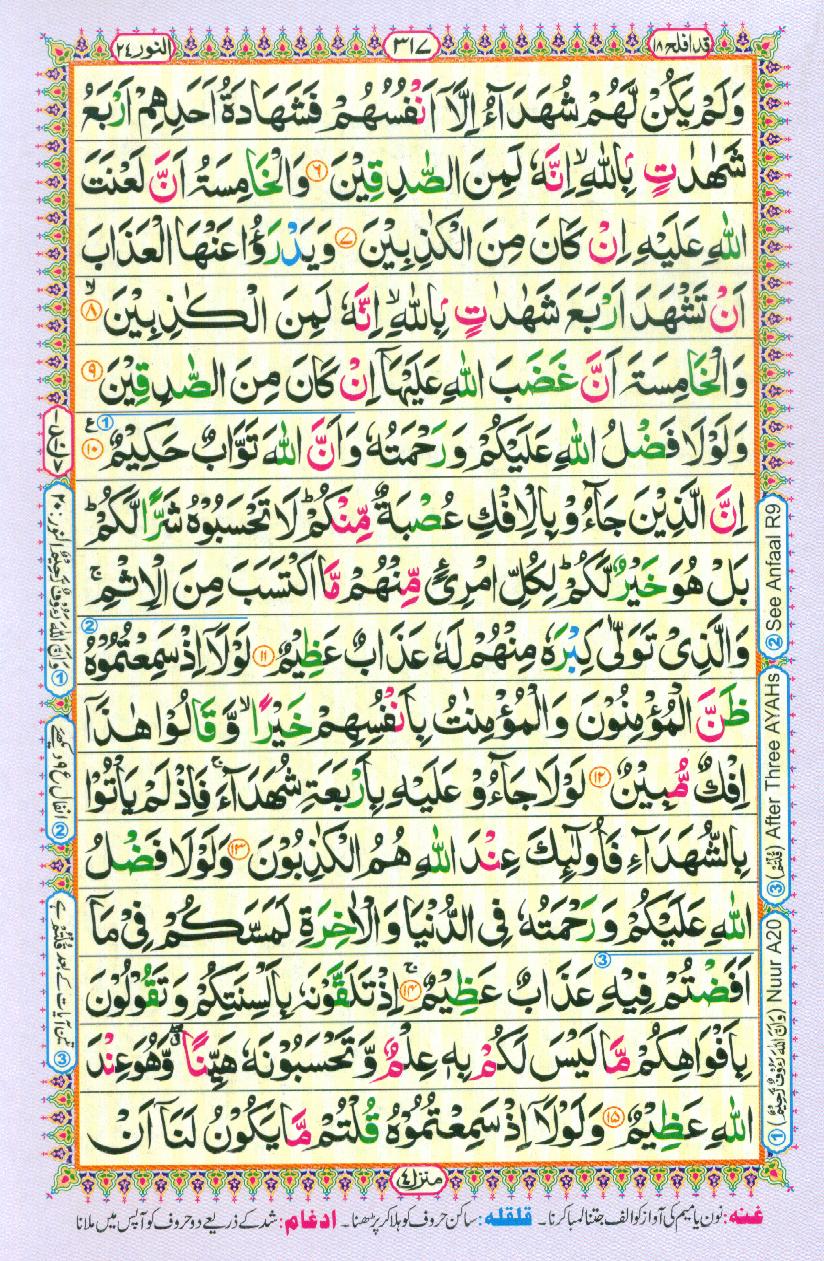 قد افلح ١٨
٣١٧
النور ٢٤
وَلَمْ يَكُنْ لَّهُمْ شُهَدَآءُ اِلَّاۤ اَنْفُسُهُمْ فَشَهَادَةُ اَحَدِهِمْ اَرْبَعُ
شَهٰدٰتٍۭ بِاللّٰهِ ۙ اِنَّهٗ لَمِنَ الصّٰدِقِيْنَ ۶ وَالْخَامِسَةُ اَنَّ لَعْنَتَ
اللّٰهِ عَلَيْهِ اِنْ كَانَ مِنَ الْكٰذِبِيْنَ ۷ وَيَدْرَؤُا عَنْهَا الْعَذَابَ
اَنْ تَشْهَدَ اَرْبَعَ شَهٰدٰتٍۭ بِاللّٰهِ ۙ اِنَّهٗ لَمِنَ الْكٰذِبِيْنَ ۙ ۸
وَالْخَامِسَةَ اَنَّ غَضَبَ اللّٰهِ عَلَيْهَاۤ اِنْ كَانَ مِنَ الصّٰدِقِيْنَ ۹
وَلَوْلَا فَضْلُ اللّٰهِ عَلَيْكُمْ وَرَحْمَتُهٗ وَاَنَّ اللّٰهَ تَوَّابٌ حَكِيْمٌ ۱۰ ع ①
اِنَّ الَّذِيْنَ جَآءُوْ بِالْاِفْكِ عُصْبَةٌ مِّنْكُمْ ؕ لَا تَحْسَبُوْهُ شَرًّا لَّكُمْ ؕ
بَلْ هُوَ خَيْرٌ لَّكُمْ ؕ لِكُلِّ امْرِئٍ مِّنْهُمْ مَّا اكْتَسَبَ مِنَ الْاِثْمِ ۚ
وَالَّذِيْ تَوَلّٰى كِبْرَهٗ مِنْهُمْ لَهٗ عَذَابٌ عَظِيْمٌ ۱۱ لَوْلَاۤ اِذْ سَمِعْتُمُوْهُ ②
ظَنَّ الْمُؤْمِنُوْنَ وَالْمُؤْمِنٰتُ بِاَنْفُسِهِمْ خَيْرًا ۙ وَّقَالُوْا هٰذَاۤ
اِفْكٌ مُّبِيْنٌ ۱۲ لَوْلَا جَآءُوْ عَلَيْهِ بِاَرْبَعَةِ شُهَدَآءَ ۚ فَاِذْ لَمْ يَاْتُوْا
بِالشُّهَدَآءِ فَاُولٰٓئِكَ عِنْدَ اللّٰهِ هُمُ الْكٰذِبُوْنَ ۱۳ وَلَوْلَا فَضْلُ
اللّٰهِ عَلَيْكُمْ وَرَحْمَتُهٗ فِي الدُّنْيَا وَالْاٰخِرَةِ لَمَسَّكُمْ فِيْ مَاۤ
اَفَضْتُمْ فِيْهِ عَذَابٌ عَظِيْمٌ ۚۖ ۱۴ ③ اِذْ تَلَقَّوْنَهٗ بِاَلْسِنَتِكُمْ وَتَقُوْلُوْنَ
بِاَفْوَاهِكُمْ مَّا لَيْسَ لَكُمْ بِهٖ عِلْمٌ وَّتَحْسَبُوْنَهٗ هَيِّنًا ۖ وَّهُوَ عِنْدَ
اللّٰهِ عَظِيْمٌ ۱۵ وَلَوْلَاۤ اِذْ سَمِعْتُمُوْهُ قُلْتُمْ مَّا يَكُوْنُ لَنَاۤ اَنْ
② See Anfaal R9
③ (قُلْتُمْ) After Three AYAHs
① (وَاَنَّ اللّٰهَ رَءُوْفٌ رَّحِيْمٌ) Nuur A20
① وَاَنَّ اللّٰهَ رَءُوْفٌ رَّحِيْمٌ النور ۲۰
② انفال ع ۹ دیکھیے
③ تین آیات کے بعد قُلْتُمْ ہے
منزل ٤
غنه: نون یا میم کی آواز کو الف جتنا لمبا کرنا۔ قلقله: ساکن حروف کو ہلا کر پڑھنا۔ ادغام: شد کے ذریعے دو حروف کو آپس میں ملانا